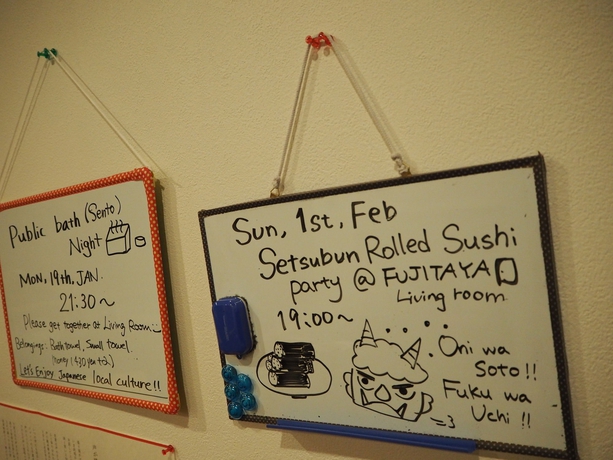 Public bath (Sento)
Night
MON, 19th, JAN.
21:30～
Please get together at Living Room
Belongings: Bath towel, Small towel
money (430 yen
Let's Enjoy Japanese local culture!!
Sun, 1st, Feb
Setsubun Rolled Sushi
party @ FUJITAYA
Living room
19:00～
Oni wa
Soto!!
Fuku wa
Uchi!!